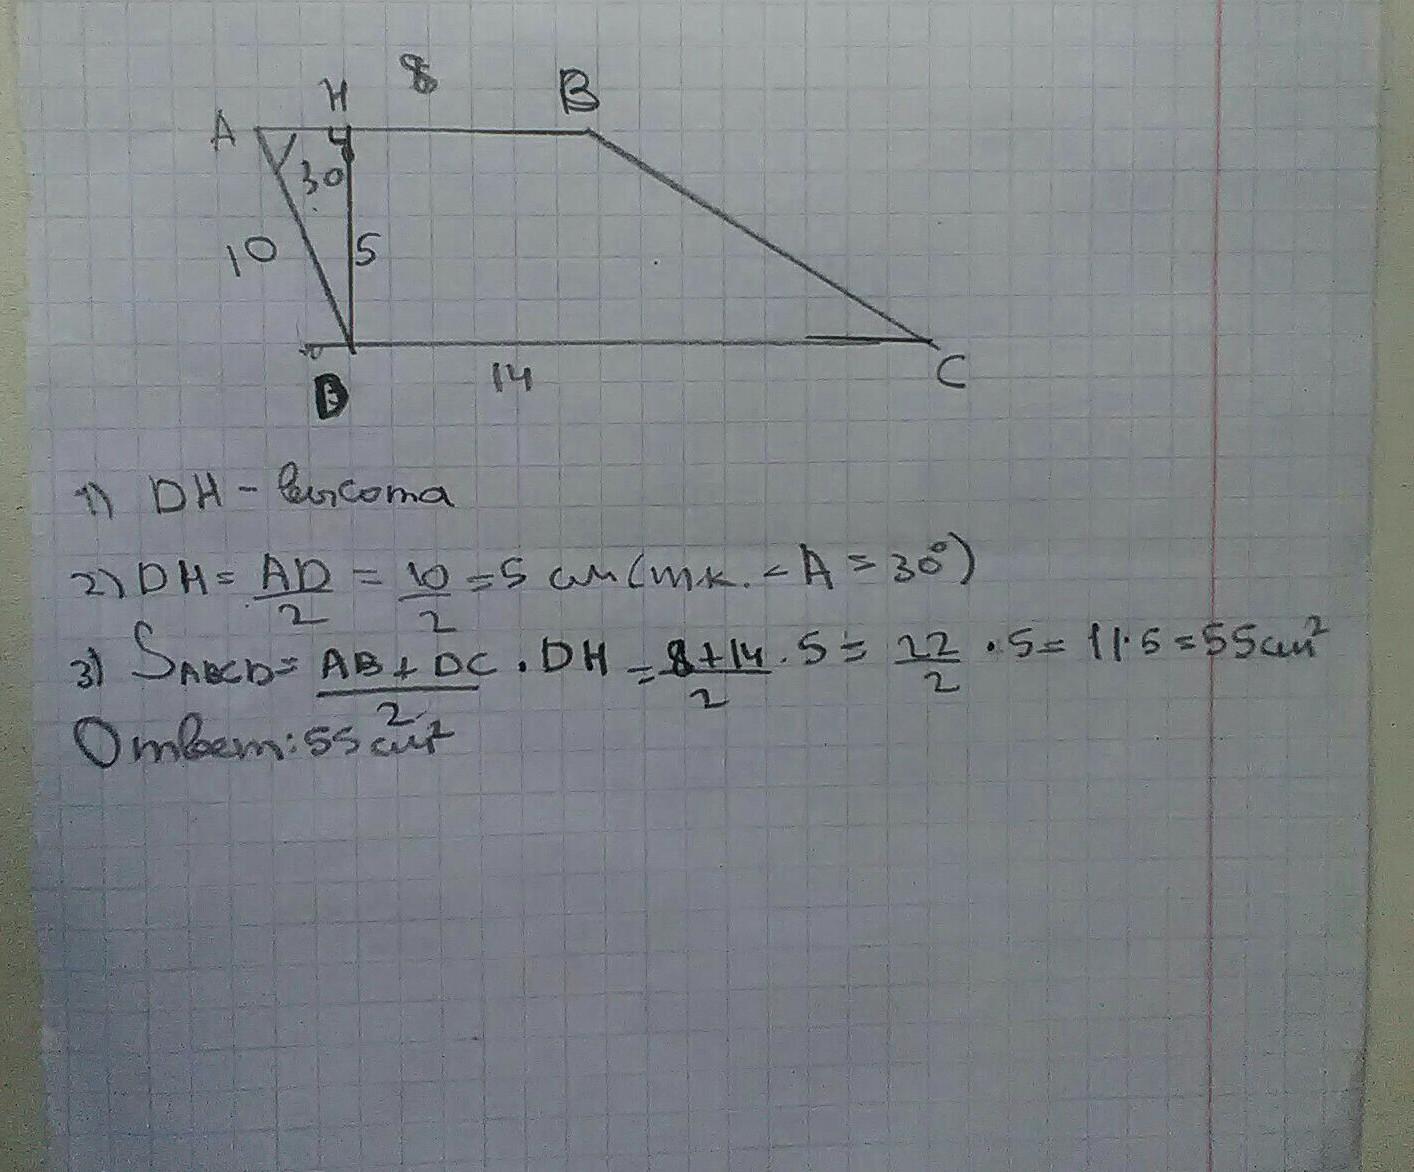 H 8 B
A
30
10 5
D 14 C
1) DH - высота
2) DH = AD/2 = 10/2 = 5 см (т.к. ∠A = 30°)
3) SABCD = AB + DC/2 · DH = 8+14/2 · 5 = 22/2 · 5 = 11·5 = 55 см²
Ответ: 55 см²